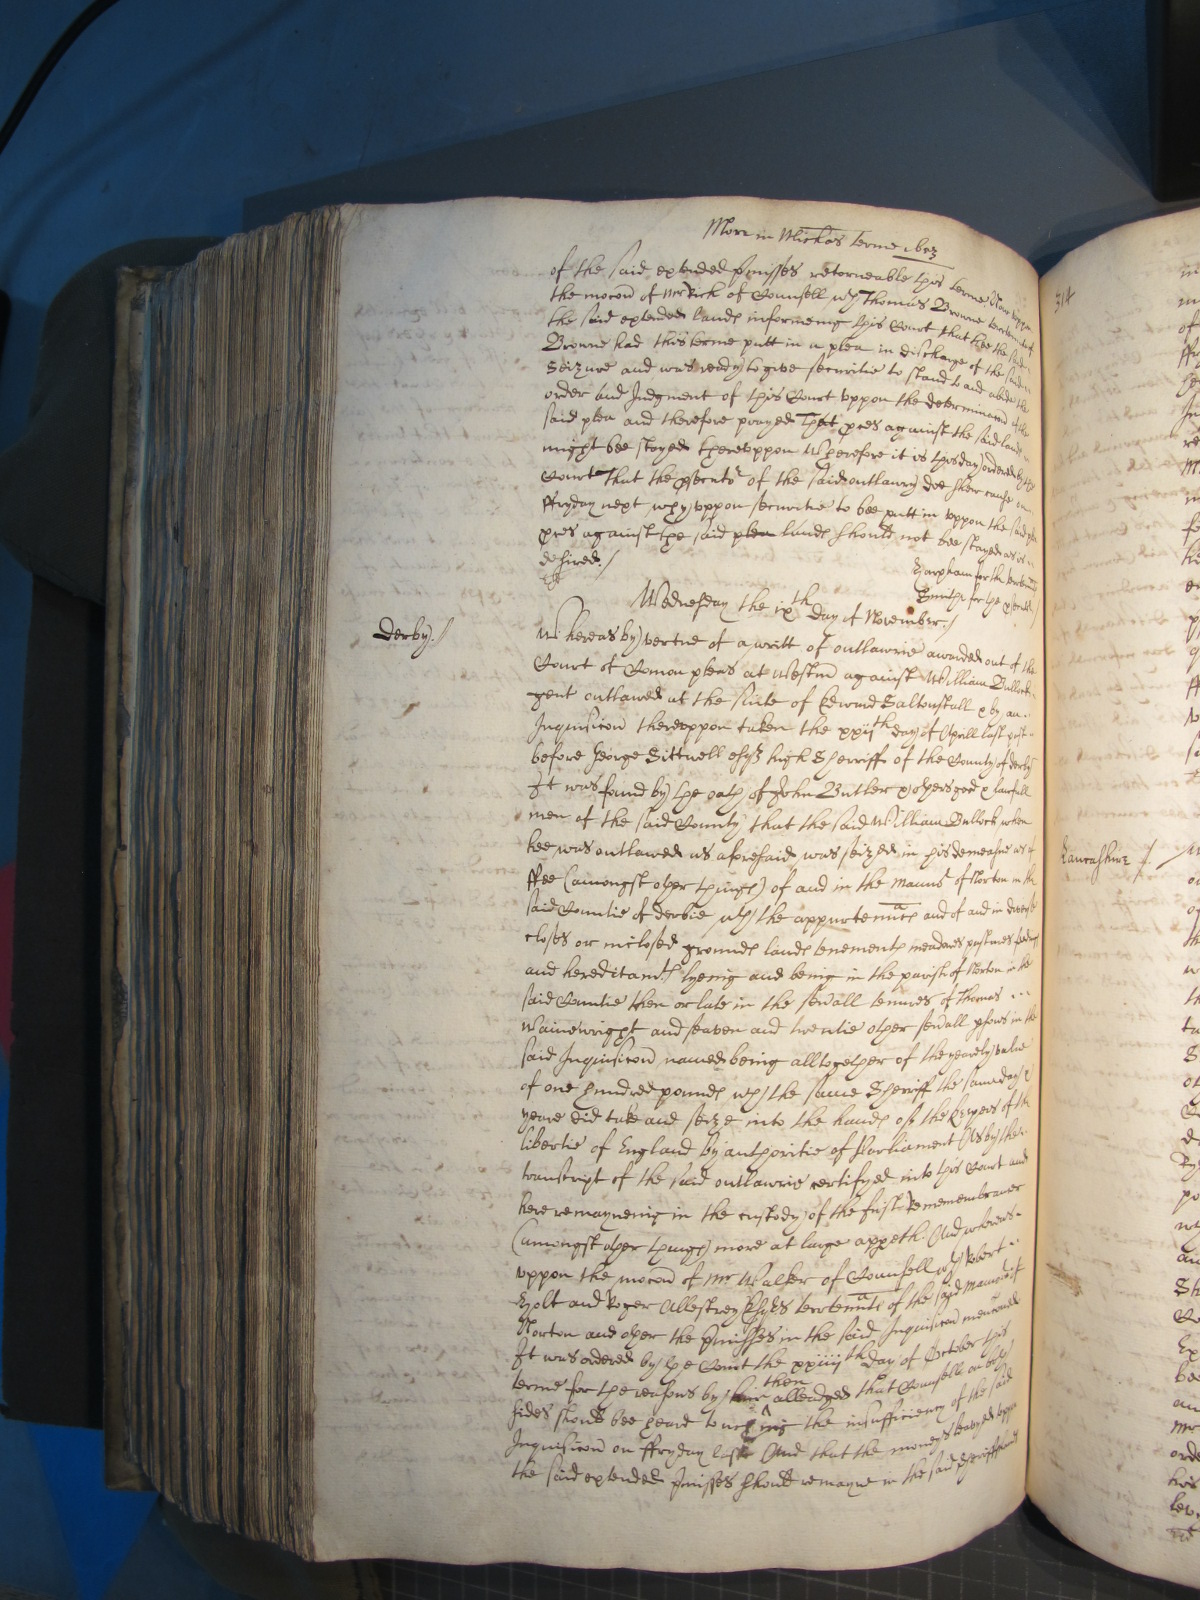 More in Mich'as terme 1653
of the said extended p'misses retorneable this terme Now uppon
the moc'on of Mr Rich of Counsell wth Thomas Browne terten't of
the said extended lands informeing this Court that hee the said
Browne had this terme putt in a plea in discharge of the said
Seizure and was ready to give securitie to stand to and abide the
order and Judgment of this Court uppon the determinac'on of the
said plea and therefore prayed That p'ces against the said lands
might bee stayed thereuppon Wherefore it is this day ordered by the
Court That the p'secutor of the said outlawry doe shew cause on
ffryday next why uppon securitie to bee putt in uppon the said plea
p'ces against the said plea lands should not bee stayed as is
desired./
for the terten't
Smith for the p'secutor
Wednesday the ixth day of November./
Derby./
Whereas by vertue of a writt of outlawrie awarded out of the
Court of Com'on pleas at Westm' against William Bullock
gent outlawed at the suite of Edward Saltonstall & by an
Inquisic'on thereuppon taken the xxiith day of Aprill last past
before George Sittwell esqr high Sherriffe of the County of derby
It was found by the oath of John Butler & others good & lawfull
men of the said County that the said William Bullock when
hee was outlawed as aforesaid was seized in his demeasne as of
ffee (amongst other things) of and in the mannor of Norton in the
said Countie of derbie wth the appurten'nces and of and in diverse
closes or inclosed grounds lands tenements meadowes pastures feedings
and hereditam'ts lyeing and being in the parish of Norton in the
said Countie then or late in the sev'all tenures of Thomas
Wainewright and seaven and twentie other sev'all p'sons in the
said Inquisic'on named being alltogether of the yearely value
of one hundred pounds wch the same Sherriff the same day &
yeare did take and seize into the hands of the keepers of the
libertie of England by authoritie of Parliament As by the
transcript of the said outlawrie certifyed into this Court and
here remayneing in the custody of the first Remembrancer
(amongst other things) more at large appeth. And whereas
uppon the moc'on of Mr Walker of Counsell wth Robert
Holt and Roger Allestrey Esqrs terten'nts of the said Mannor of
Norton and other the p'misses in the said Inquisic'on menc'oned
It was ordered by the Court the xxiiiith day of October this
terme for the reasons by then alleadged that Counsell on both
sides should bee heard touching the insufficiency of the said
Inquisic'on on ffryday last And that the moneys leavyed uppon
the said extended p'misses should remayne in the said Sherriffs hands
314
Lancashire ./